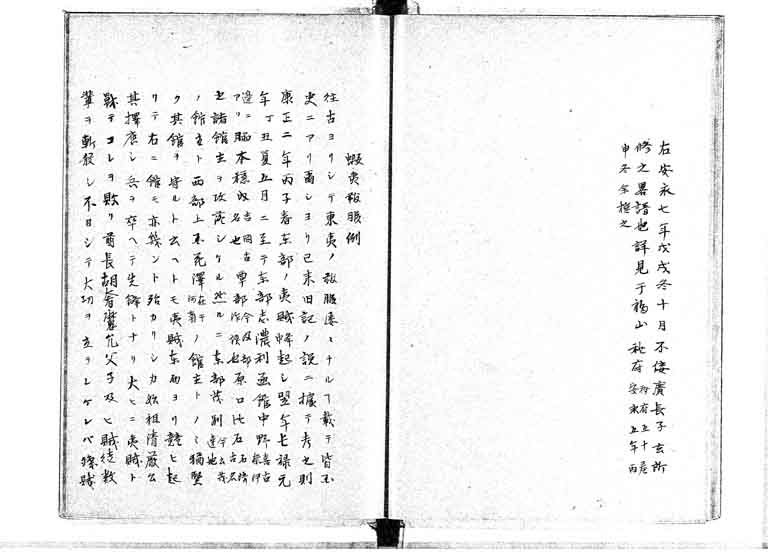 右安永七年戊戌冬十月不佞廣長子玄所
修之畧譜也詳見于福山秘府
安永五年丙
申冬全之
蝦夷叛服例
往古ヨリシテ東夷ノ叛服屡ミナルフ載テ皆玉
史ニアリ而シヨリ已来旧記ノ説ニ據テ考之則
康正二年丙子春東部ノ夷賊蜂起シ翌年長禄元
年丁丑夏五月ニ至テ東部志濃利函館中野
邉ニアリ脇本穏内
名也覃部原口比石
セ諸館主ヲ攻落シケル然ルニ東部茂別
ノ館主ト西部上ノ國花澤ノ館主トノミ獨堅
ク其館ヲ守ルト云ヘトモ夷賊東西ヨリ競ヒ起
リテ右二館モ亦幾ント殆カリシカ始祖清厳公
其擇應シ兵ヲ卒ヘテ先鋒トナリ大ヒニ夷賊ト
戦テコレヲ敗リ酋長胡奢魔允父子及ヒ賊徒数
輩ヲ斬殺シ不日シテ大功ヲ立ラレケレバ残賊